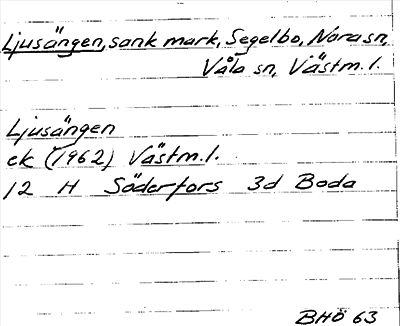 Ljusängen, sank mark, Segelbo, Nora sn,
Våla sn, Västm.l.
Ljusängen
ek (1962) Västm.l.
12 H Söderfors 3d Boda
BHÖ 63